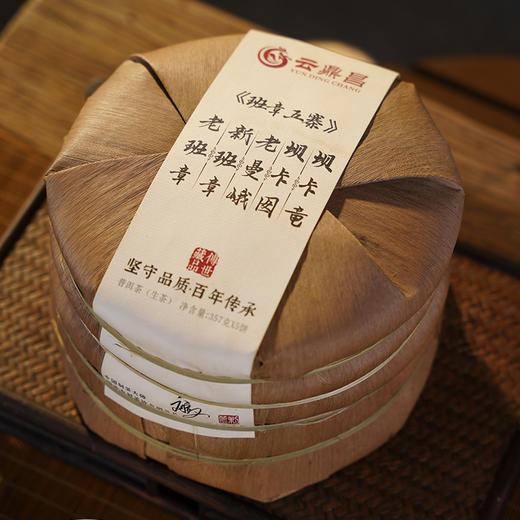 云鼎昌
YUN DING CHANG
《班章五寨》
坝卡竜
坝卡囡
老曼峨
新班章
老班章
傳世藏品
坚守品质·百年传承
普洱茶（生茶） 净含量:357克X5饼